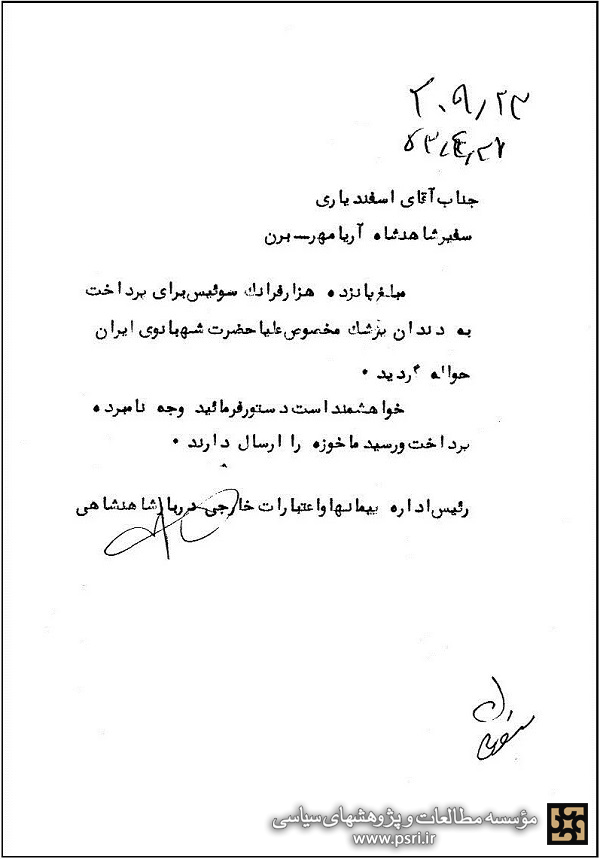 ۲۰۹/۲۳
جناب آقای اسفندیاری
سفیر شاهنشاه آریامهر — برن
مبلغ پانزده هزار فرانك سوئیس برای پرداخت
به دندان پزشك مخصوص علیاحضرت شهبانوی ایران
حواله گردید .
خواهشمند است دستور فرمائید وجه نامبرده
پرداخت و رسید ماخوزه را ارسال دارند .
رئیس اداره پیمانها و اعتبارات خارجی دربار شاهنشاهی
مؤسسه مطالعات و پژوهشهای سیاسی
www.psri.ir